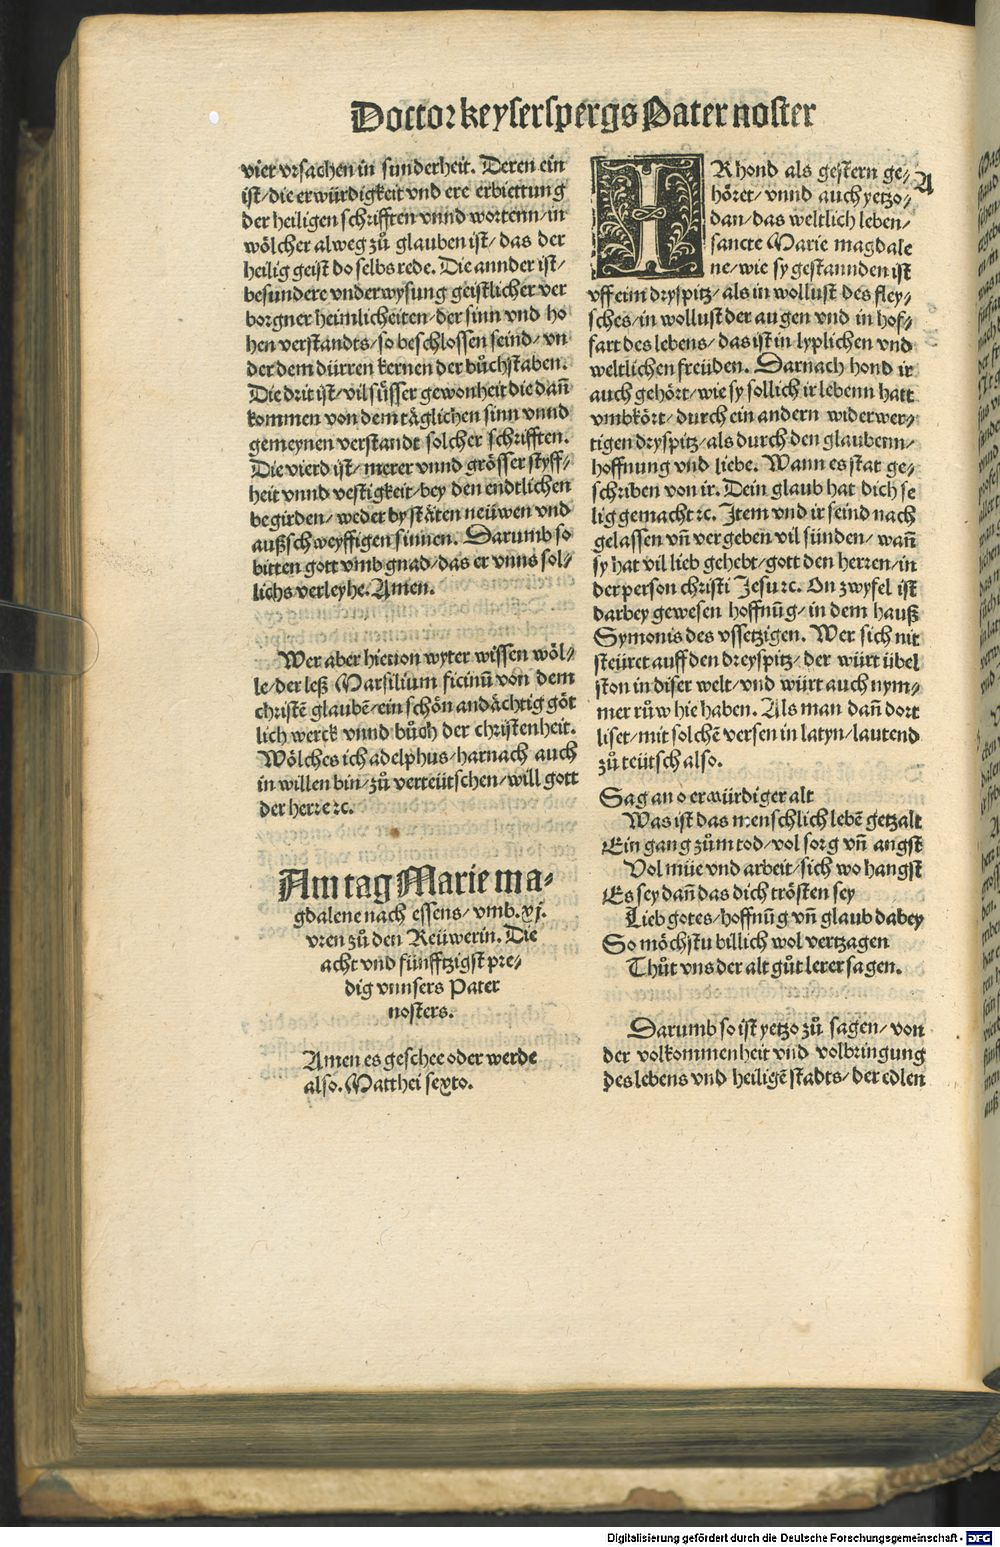 Doctor keyserspergs Pater noster
vier vrsachen in sunderheit. Deren ein
ist/ die erwürdigkeit vnd ere erbiettung
der heiligen schrifften vnnd wortenn/ in
wölcher alweg zuͦ glauben ist/ das der
heilig geist do selbs rede. Die annder ist/
besundere vnderwysung geistlicher ver
borgner heimlicheiten/ der sinn vnd ho
hen verstandts/ so beschlossen seind/ vn
der dem dürren kernen der buͦchstaben.
Die drit ist/ vil süsser gewonheit die dañ
kommen von dem täglichen sinn vnnd
gemeynen verstandt solcher schrifften.
Die vierd ist/ merer vnnd grösser styff⸗
heit vnnd vestigkeit/ bey den endtlichen
begirden/ weder by stäten neüwen vnd
außschweyffigen sinnen. Darumb so
bitten gott vmb gnad/ das er vnns sol⸗
lichs verleyhe. Amen.
Wer aber hieuon wyter wissen wöl⸗
le/ der leß Marsilium ficinū von dem
christē glaubē/ ein schön andächtig göt
lich werck vnnd buͦch der christenheit.
Wölches ich adelphus/ harnach auch
in willen bin/ zuͦ verteütschen/ will gott
der herr ꝛc.
Am tag Marie ma⸗
gdalene nach essens/ vmb. vj.
vren zuͦ den Reüwerin. Die
acht vnd fünfftzigst pre⸗
dig vnnsers Pater
nosters.
Amen es geschee oder werde
also. Matthei sexto.
IR hond als gestern ge⸗ A
höret/ vnnd auch yetzo⸗
dan/ das weltlich leben/
sancte Marie magdale
ne/ wie sy gestannden ist
vff eim dryspitz/ als in wollust des fley⸗
sches/ in wollust der augen vnd in hof⸗
fart des lebens/ das ist in lyplichen vnd
weltlichen freüden. Darnach hond ir
auch gehört/ wie sy sollich ir lebenn hatt
vmbkört/ durch ein andern widerwer⸗
tigen dryspitz/ als durch den glaubenn/
hoffnung vnd liebe. Wann es stat ge⸗
schriben von ir. Dein glaub hat dich se
lig gemacht ꝛc. Item vnd ir seind nach
gelassen vñ vergeben vil sünden/ wañ
sy hat vil lieb gehebt/ gott den herren/ in
der person christi Jesu ꝛc. On zwyfel ist
darbey gewesen hoffnūg/ in dem hauß
Symonis des vssetzigen. Wer sich nit
steüret auff den dreyspitz/ der würt übel
ston in diser welt/ vnd würt auch nym⸗
mer ruͦw hie haben. Als man dañ dort
liset/ mit solchē versen in latyn/ lautend
zuͦ teütsch also.
Sag an o erwürdiger alt
Was ist das menschlich lebē getzalt
Ein gang zuͦm tod/ vol sorg vñ angst
Vol müe vnd arbeit/ sich wo hangst
Es sey dañ das dich trösten sey
Lieb gotes/ hoffnūg vñ glaub dabey
So möchstu billich wol vertzagen
Thuͦt vns der alt guͦt lerer sagen.
Darumb so ist yetzo zuͦ sagen/ von
der volkommenheit vnd volbringung
des lebens vnd heiligē stadts/ der edlen
Digitalisierung gefördert durch die Deutsche Forschungsgemeinschaft - DFG